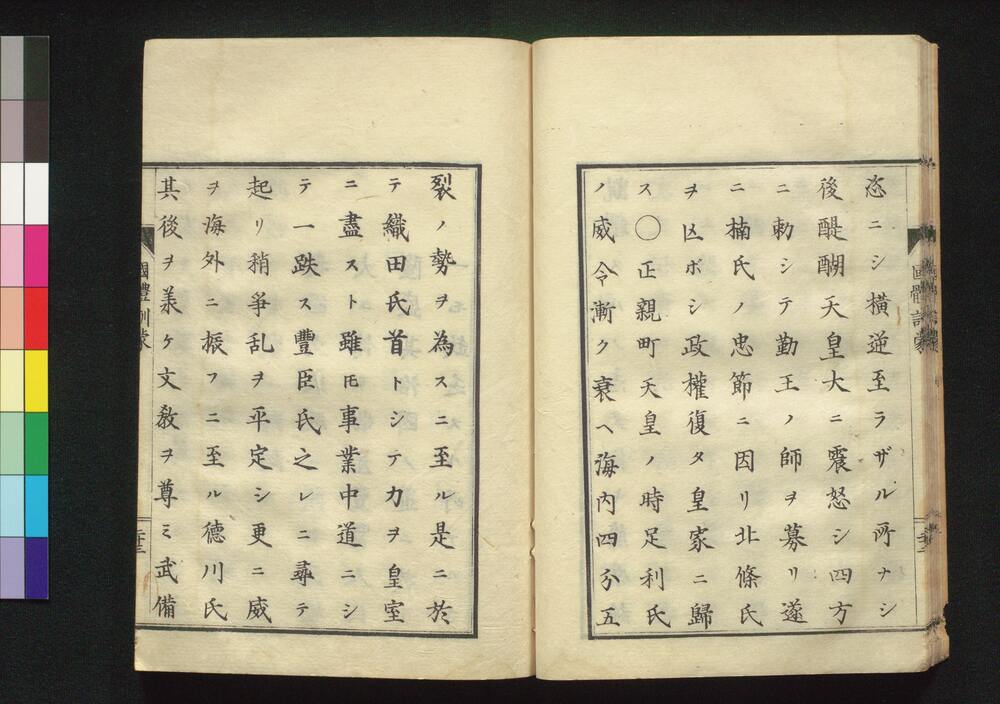 恣ニシ横逆至ラザル所ナシ
後醍醐天皇大ニ震怒シ四方
ニ勅シテ勤王ノ師ヲ募リ遂
ニ楠氏ノ忠節ニ因リ北條氏
ヲ亾ボシ政權復タ皇家ニ歸
ス〇正親町天皇ノ時足利氏
ノ威令漸ク衰ヘ海内四分五
裂ノ勢ヲ為スニ至ル是ニ於
テ織田氏首トシテ力ヲ皇室
ニ盡スト雖𪜈事業中道ニシ
テ一跌ス豐臣氏之レニ尋テ
起リ稍爭乱ヲ平定シ更ニ威
ヲ海外ニ振フニ至ル德川氏
其後ヲ羕ケ文教ヲ尊ミ武備
國體訓蒙